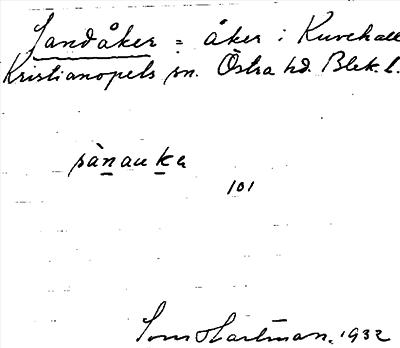 Sandåker = åker i Kurehall
Kristianopels sn. Östra hd. Blek. l.
sànauka
101
Hartman, 1932